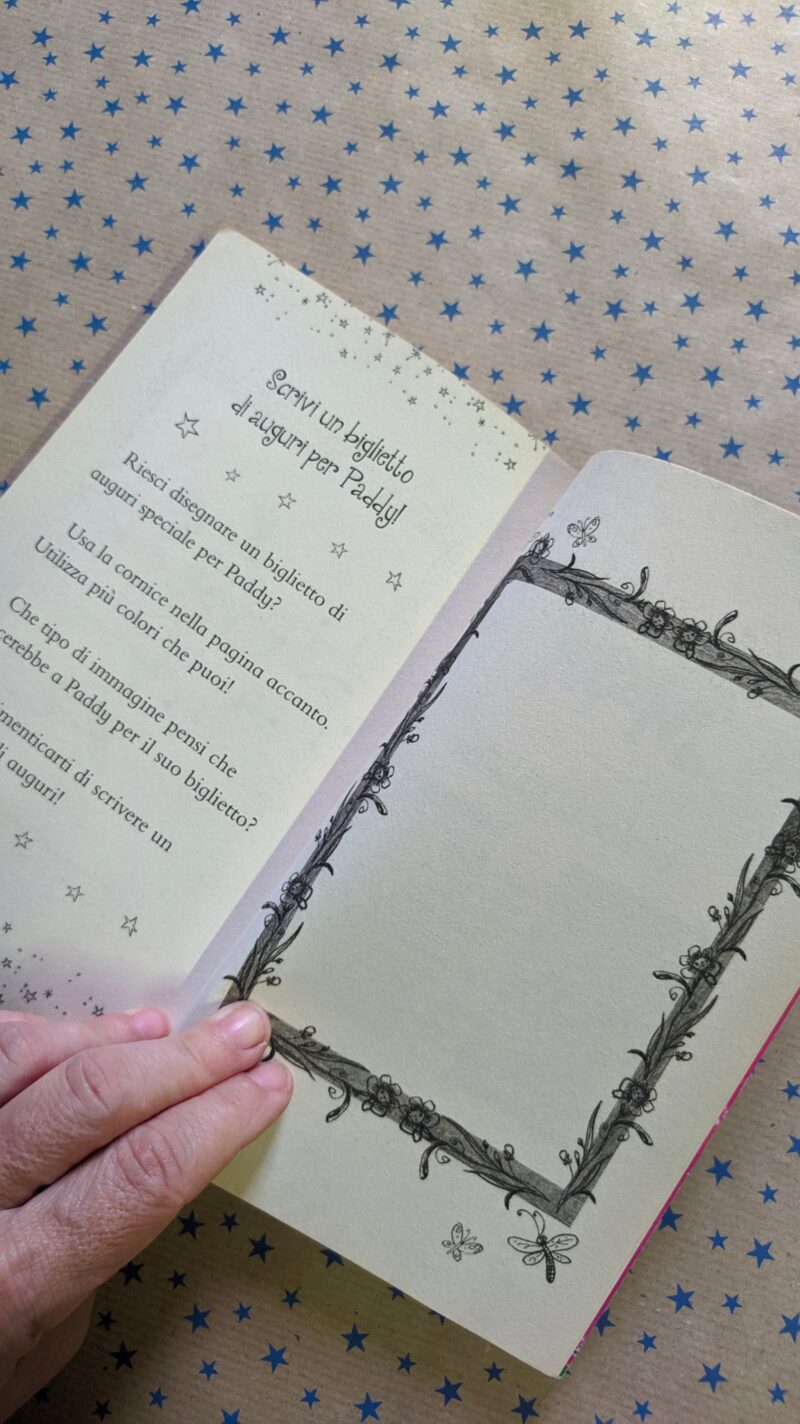 Scrivi un biglietto
di auguri per Paddy!
Riesci disegnare un biglietto di
auguri speciale per Paddy?
Usa la cornice nella pagina accanto.
Utilizza più colori che puoi!
Che tipo di immagine pensi che
a Paddy per il suo biglietto?
di scrivere un
auguri!